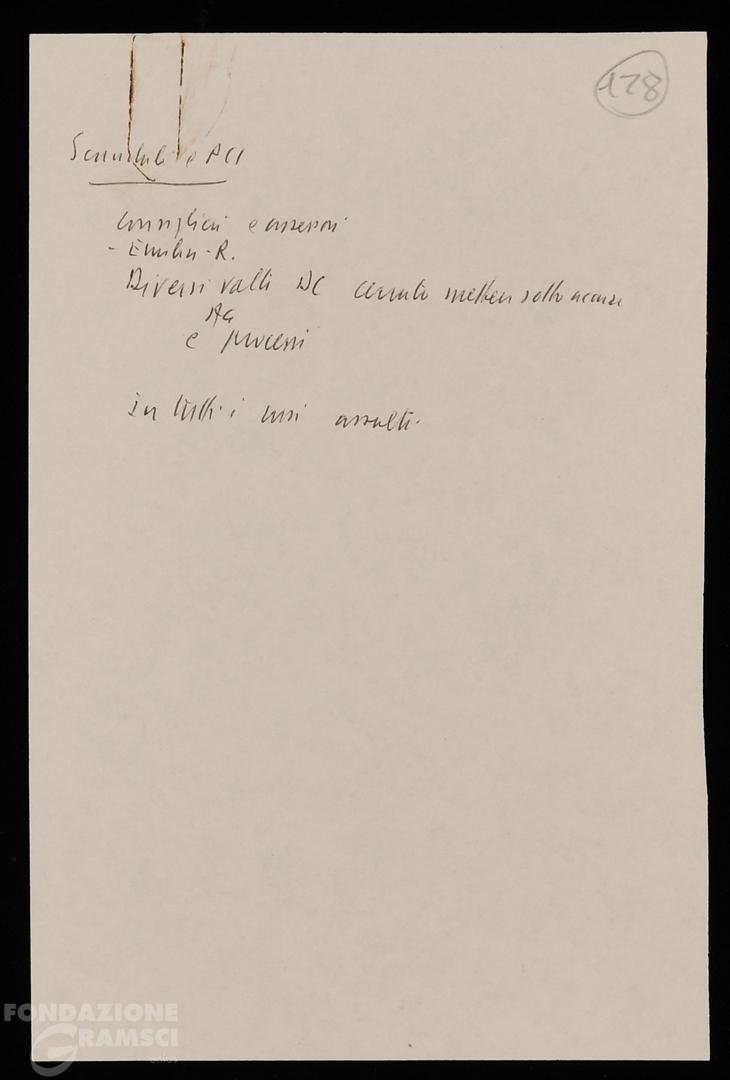 178
Scandali e PCI
Consiglieri e assessori
- Emilia-R.
Diversi volte DC cercato mettere sotto accusa
e processi
In tutti i casi assolti.
FONDAZIONE
GRAMSCI
onlus